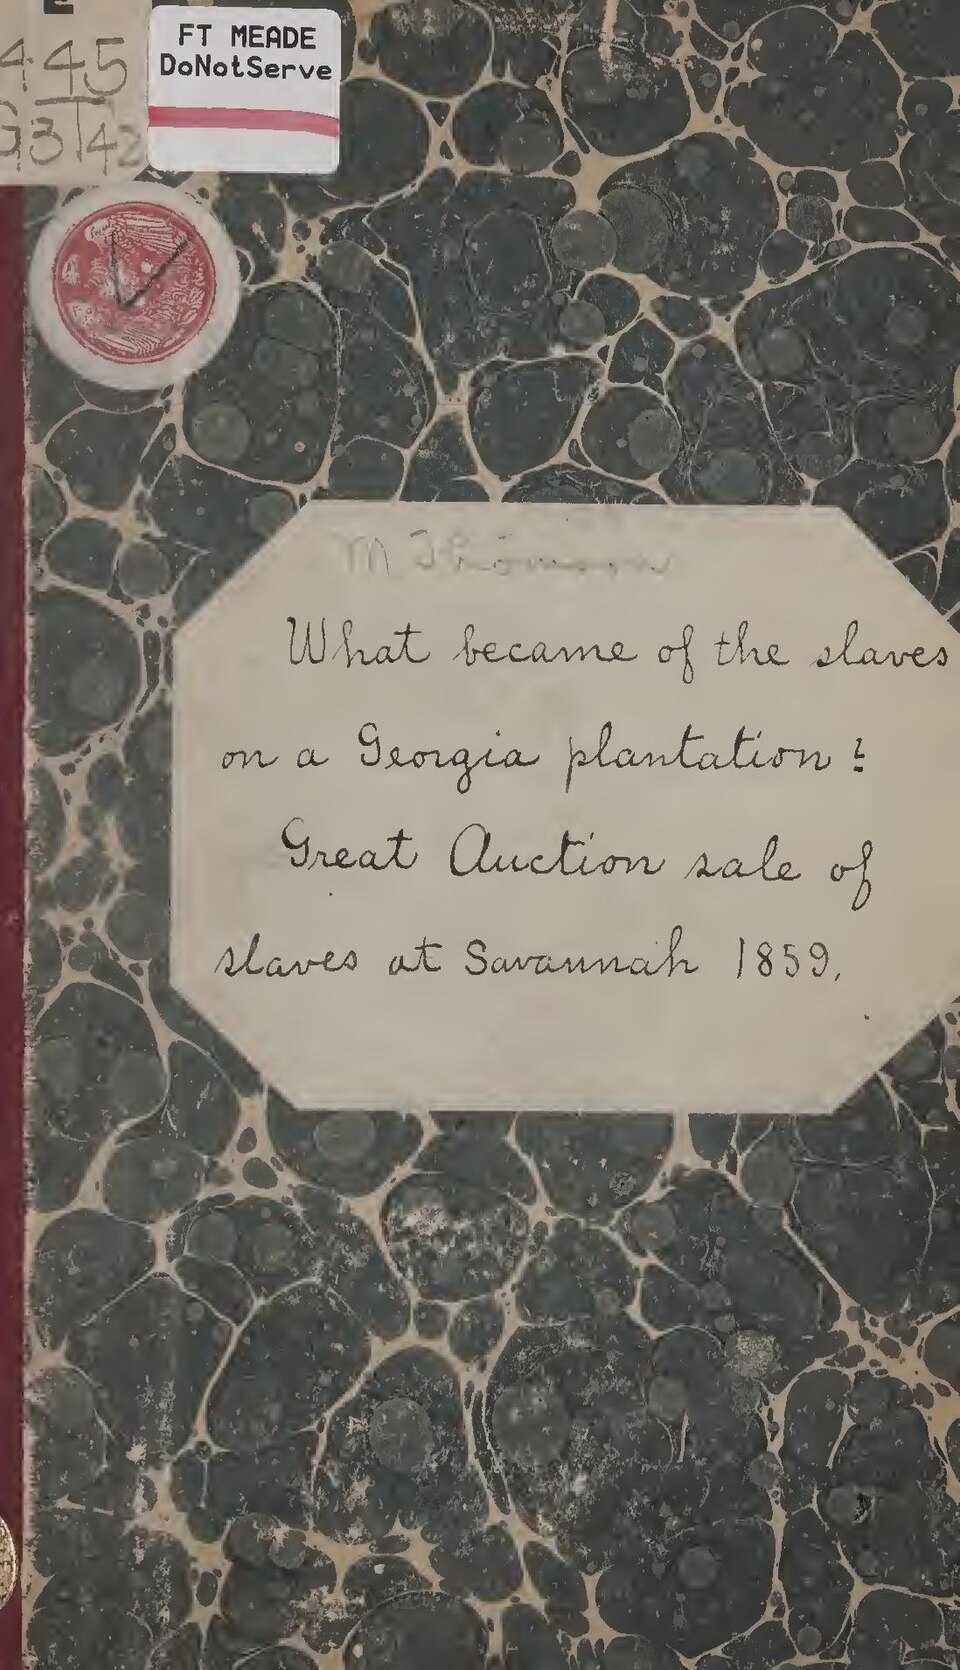 E
445
G3T42
FT MEADE
DoNotServe
M Thomson
What became of the slaves
on a Georgia plantation?
Great Auction sale of
slaves at Savannah 1859.